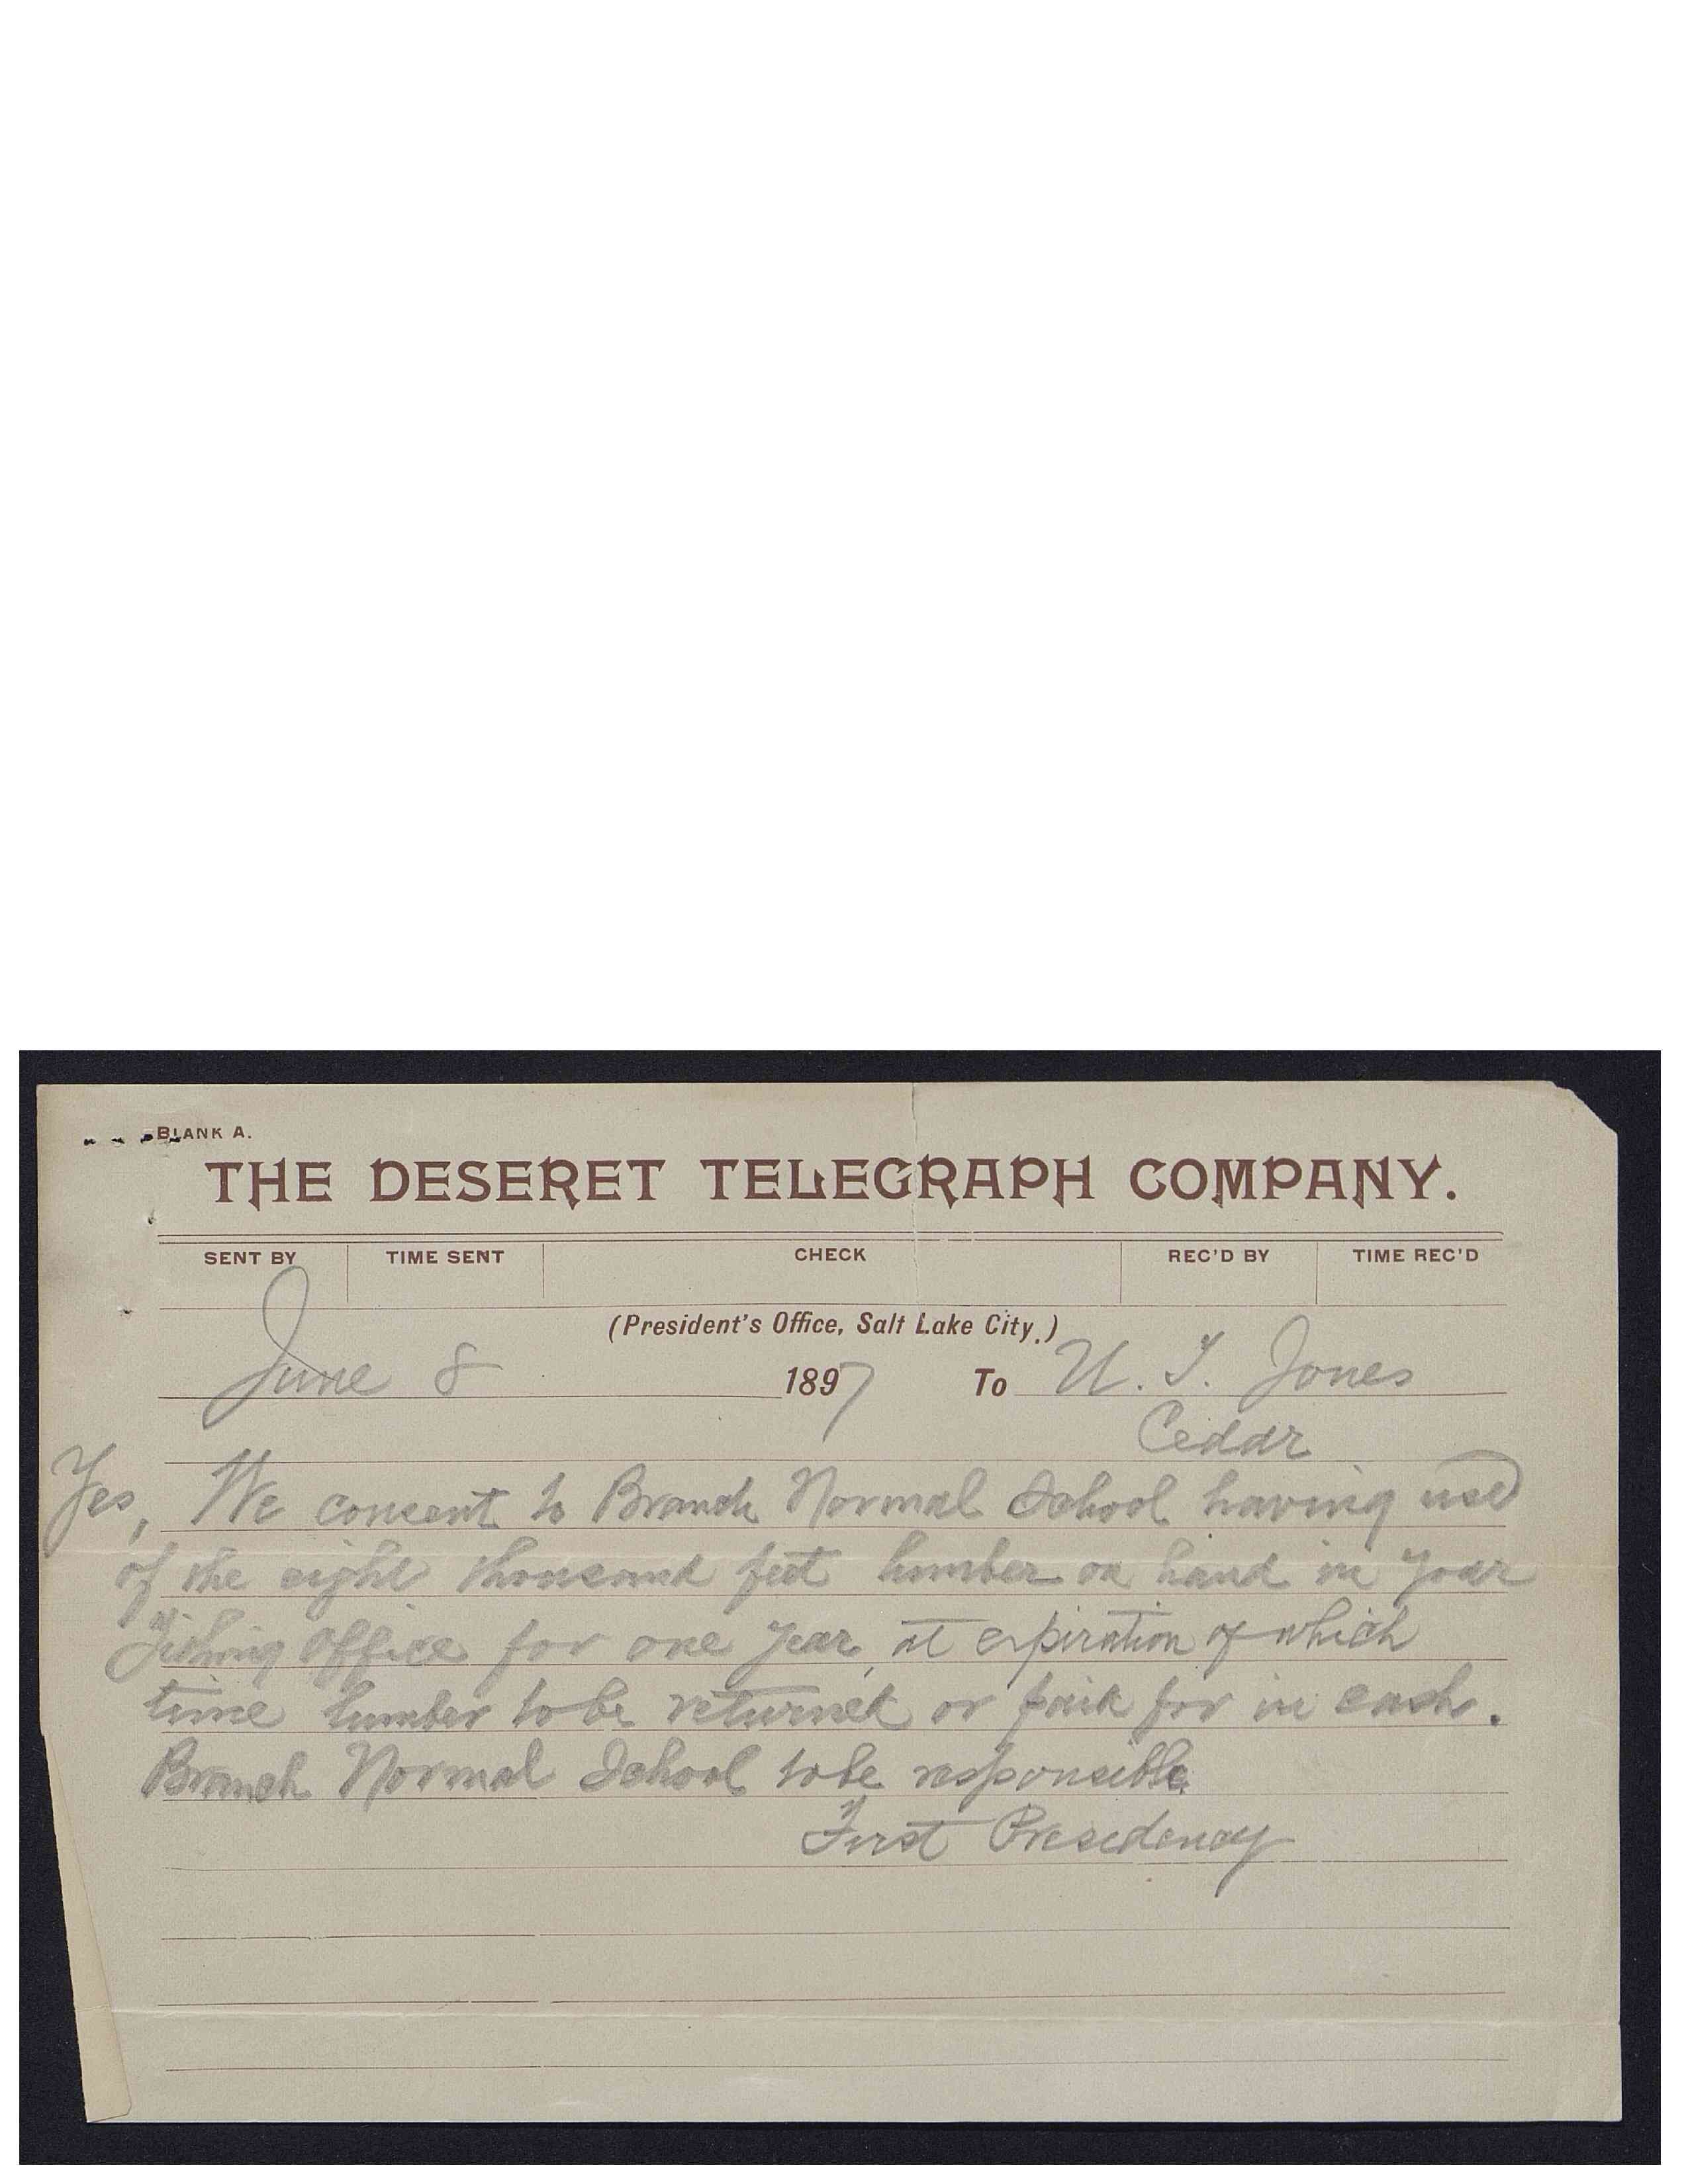 BLANK A.
THE DESERET TELEGRAPH COMPANY.
SENT BY TIME SENT CHECK REC'D BY TIME REC'D
(President's Office, Salt Lake City.)
June 8 1897 To U. T. Jones
Cedar
Yes, We consent to Branch Normal School having use
of the eight thousand feet lumber on hand in your
Tithing Office for one year, at expiration of which
time lumber to be returned or paid for in cash.
Branch Normal School to be responsible.
First Presidency